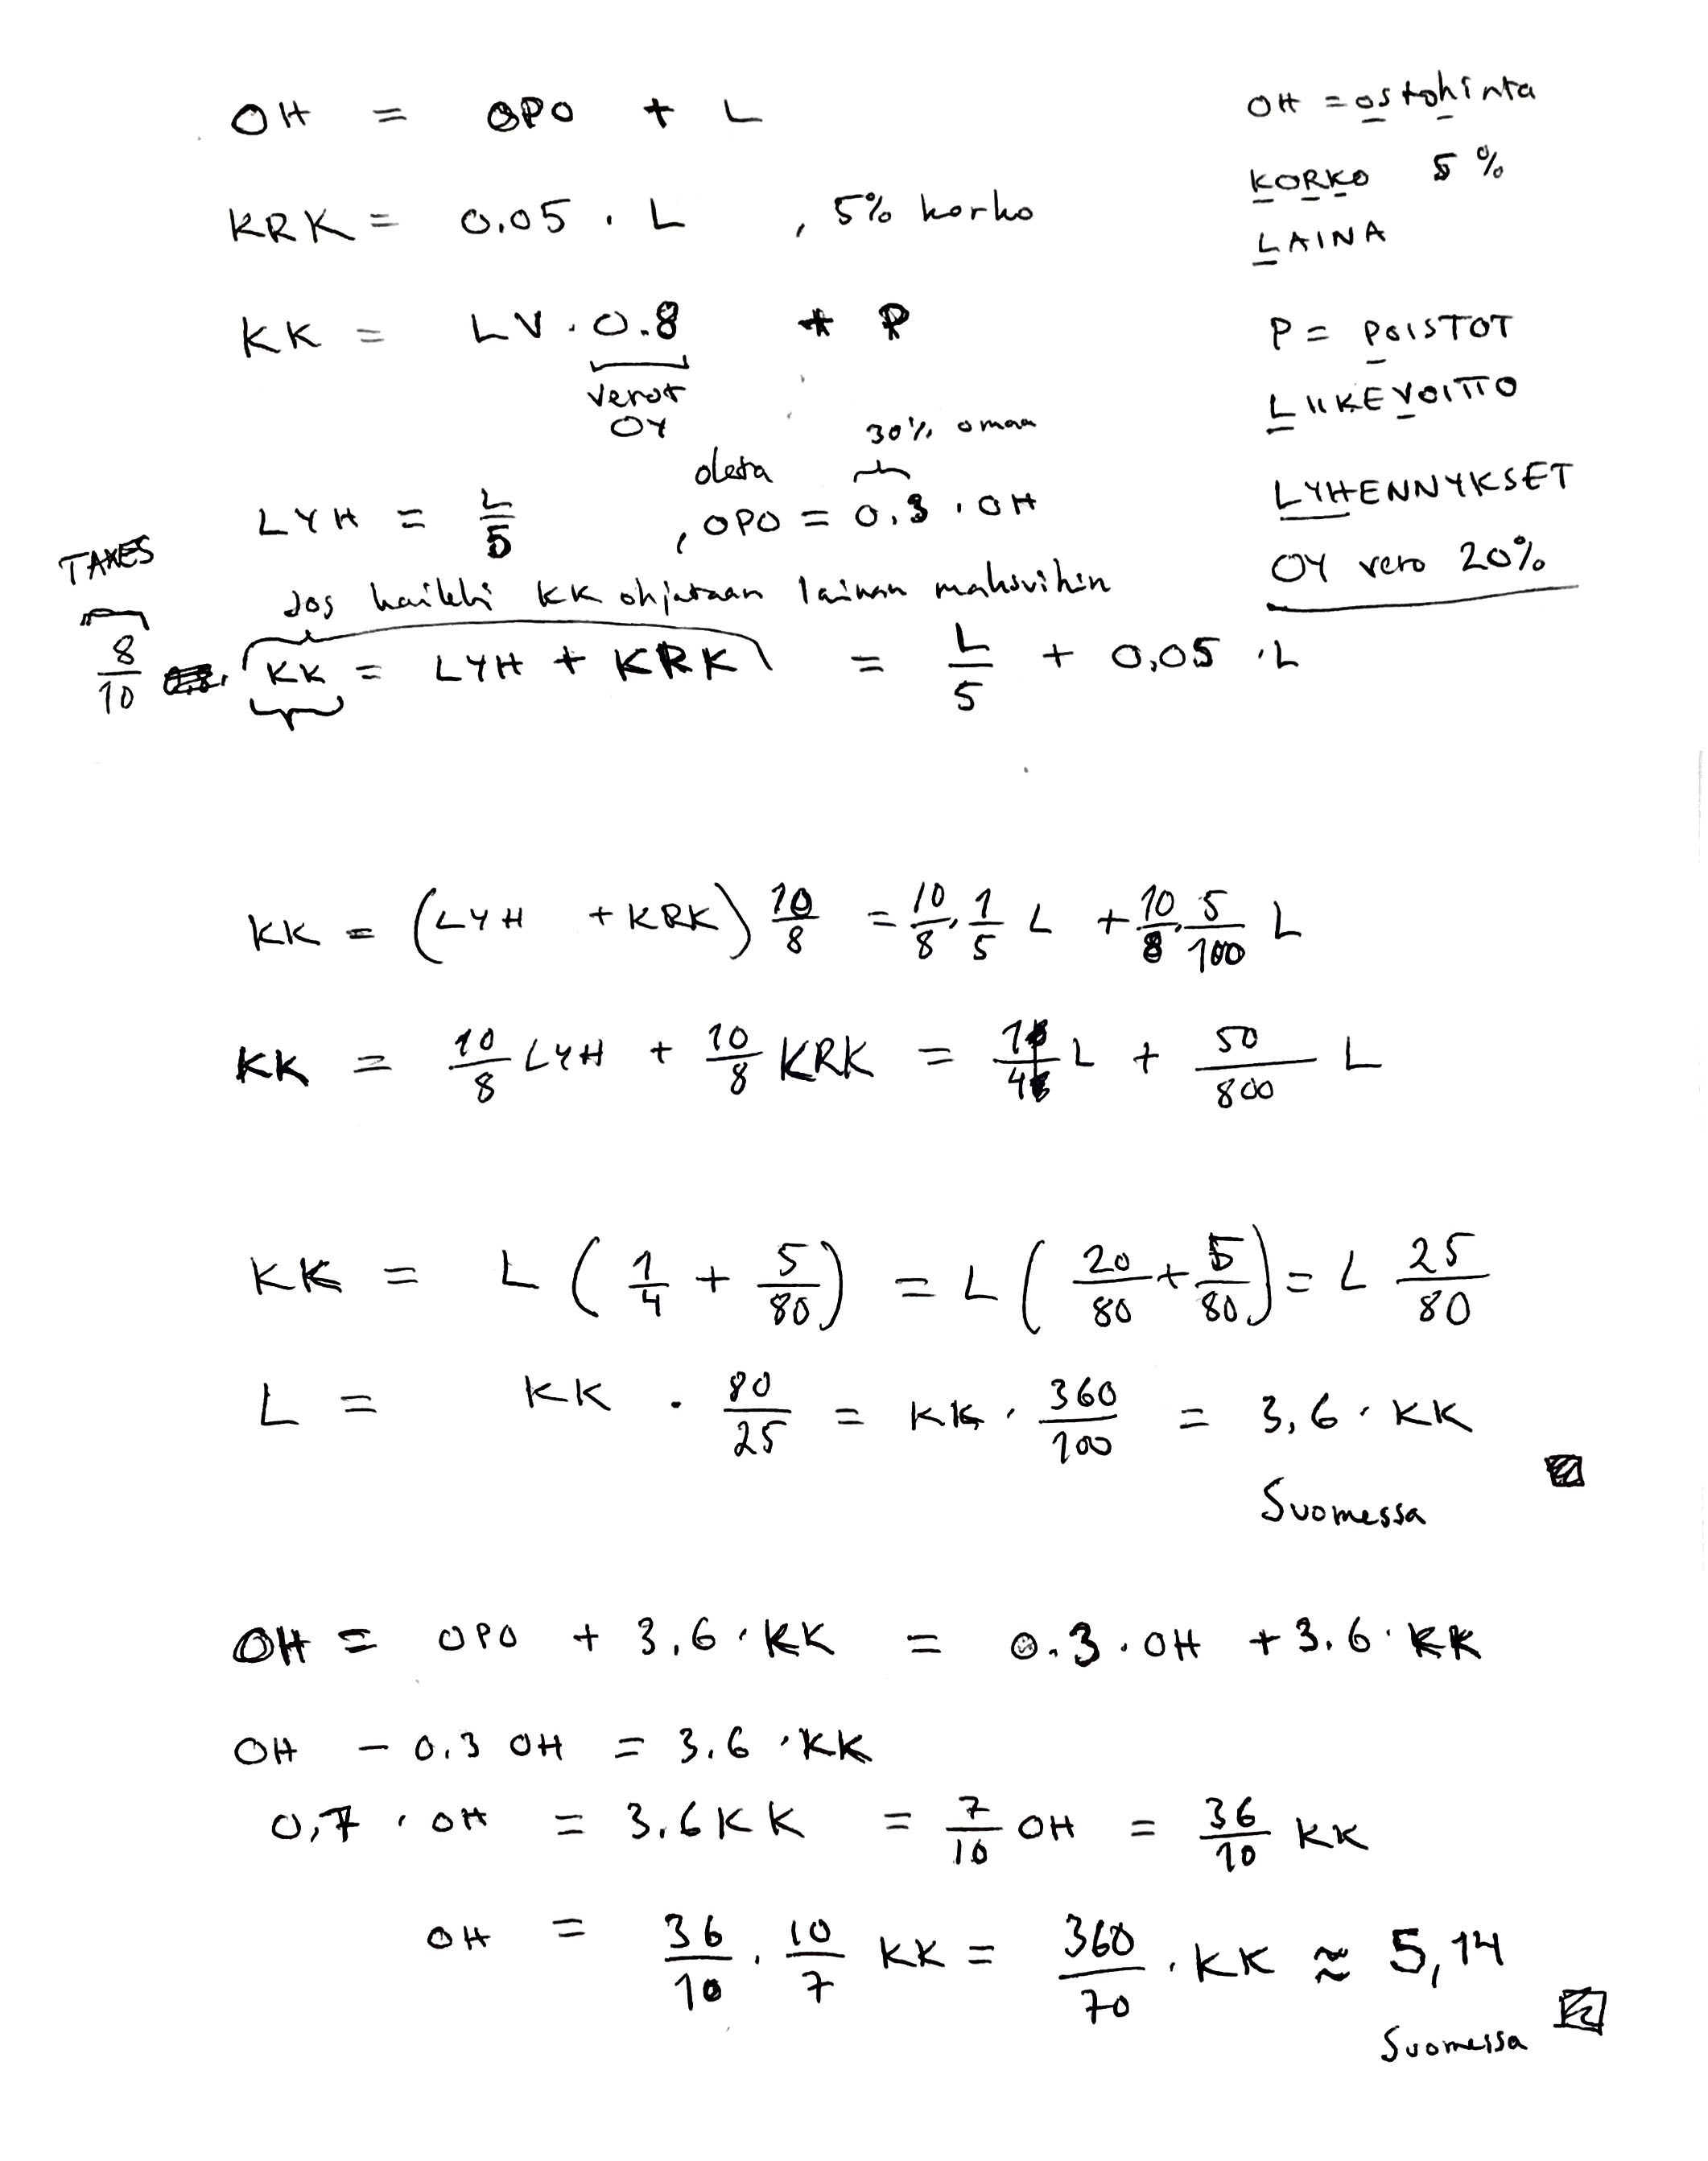 OH = OPO + L
OH = ostohinta
KORKO 5 %
KRK = 0,05 · L , 5% korko
LAINA
KK = LV · 0.8 + P
P = POISTOT
verot
OY
LIIKEVOITTO
30% omaa
oleta
LYH = L/5 , OPO = 0,3 · OH
LYHENNYKSET
TAXES
OY vero 20%
Jos kaikki KK ohjataan lainan maksuihin
8/10 · KK = LYH + KRK = L/5 + 0,05 · L
KK = (LYH + KRK) 10/8 = 10/8 · 1/5 L + 10/8 · 5/100 L
KK = 10/8 LYH + 10/8 KRK = 1/4 L + 50/800 L
KK = L ( 1/4 + 5/80 ) = L ( 20/80 + 5/80 ) = L 25/80
L = KK · 80/25 = KK · 360/100 = 3,6 · KK
Suomessa
OH = OPO + 3,6 · KK = 0.3 · OH + 3.6 · KK
OH - 0.3 OH = 3.6 · KK
0,7 · OH = 3.6 KK = 7/10 OH = 36/10 KK
OH = 36/10 · 10/7 KK = 360/70 · KK ≈ 5,14
Suomessa